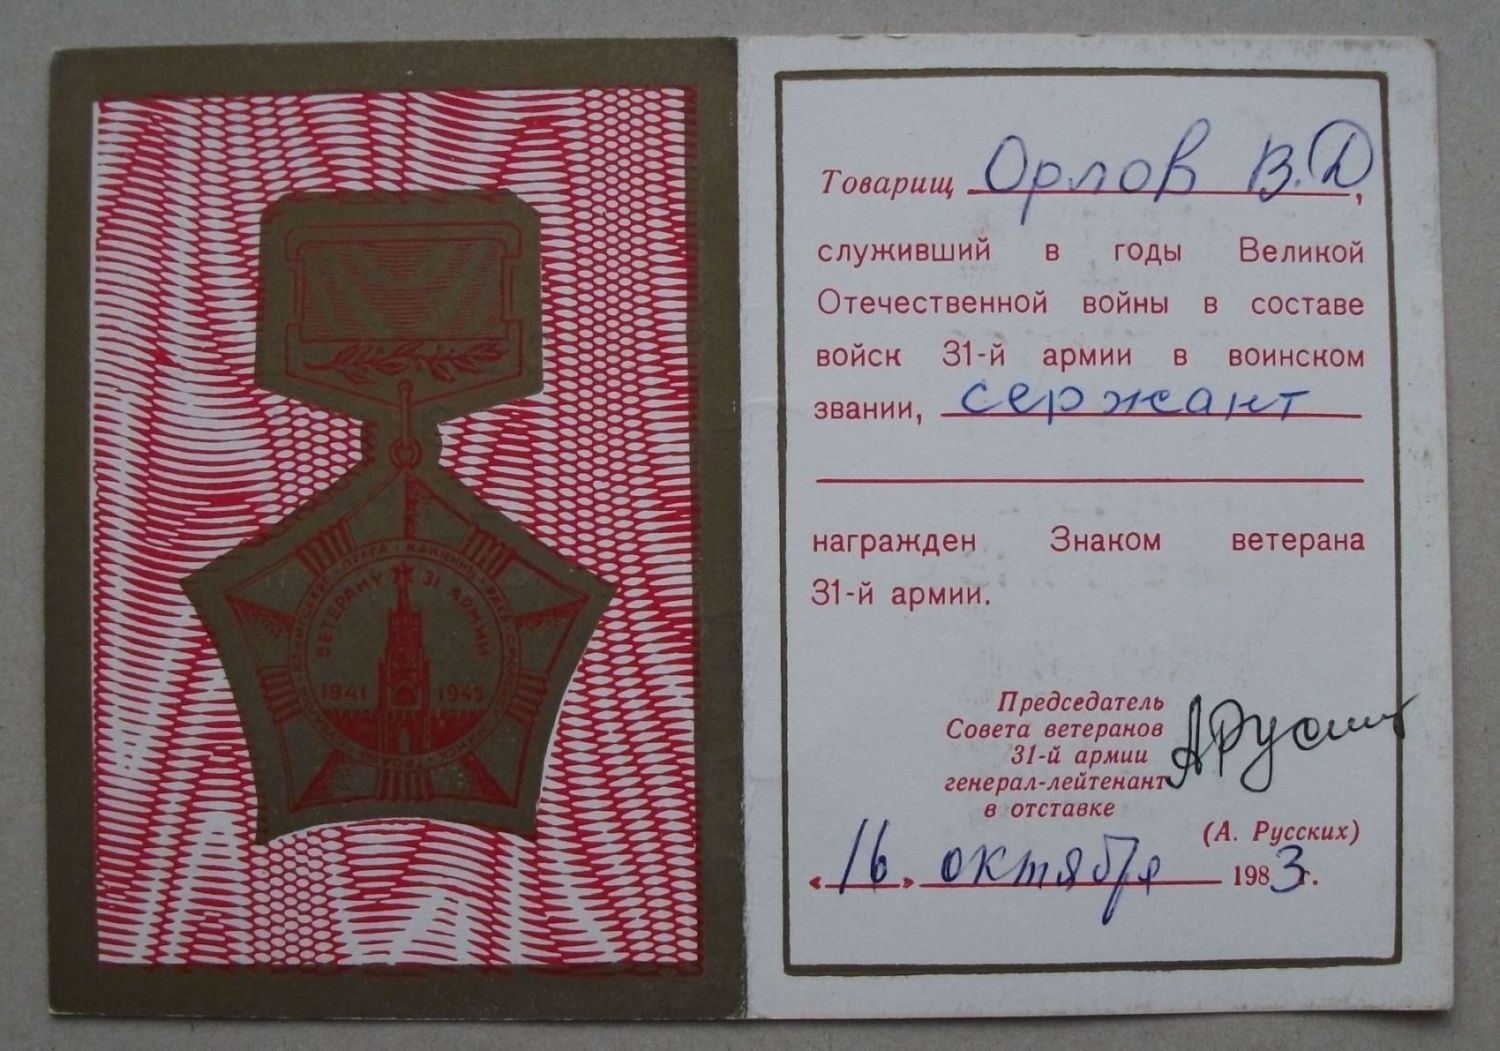 ВЕТЕРАНУ 31 АРМИИ
ПРАГА · КАЛИНИН · РЖЕВ
1941 1945
Товарищ Орлов В.Д,
служивший в годы Великой
Отечественной войны в составе
войск 31-й армии в воинском
звании, сержант
награжден Знаком ветерана
31-й армии.
Председатель
Совета ветеранов
31-й армии
генерал-лейтенант
в отставке
(А. Русских)
«16» октября 1983г.